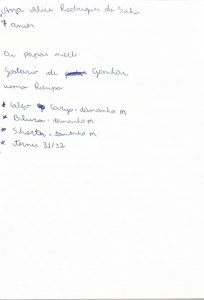 Ana Alice Rodrigues da Silva
7 anos
Oi papai noel
Gostaria de Ganhar
uma Roupa
* Calça Larga - tamanho M
* Blusa - tamanho M
* Shorts - tamanho M
* tenis 31/32